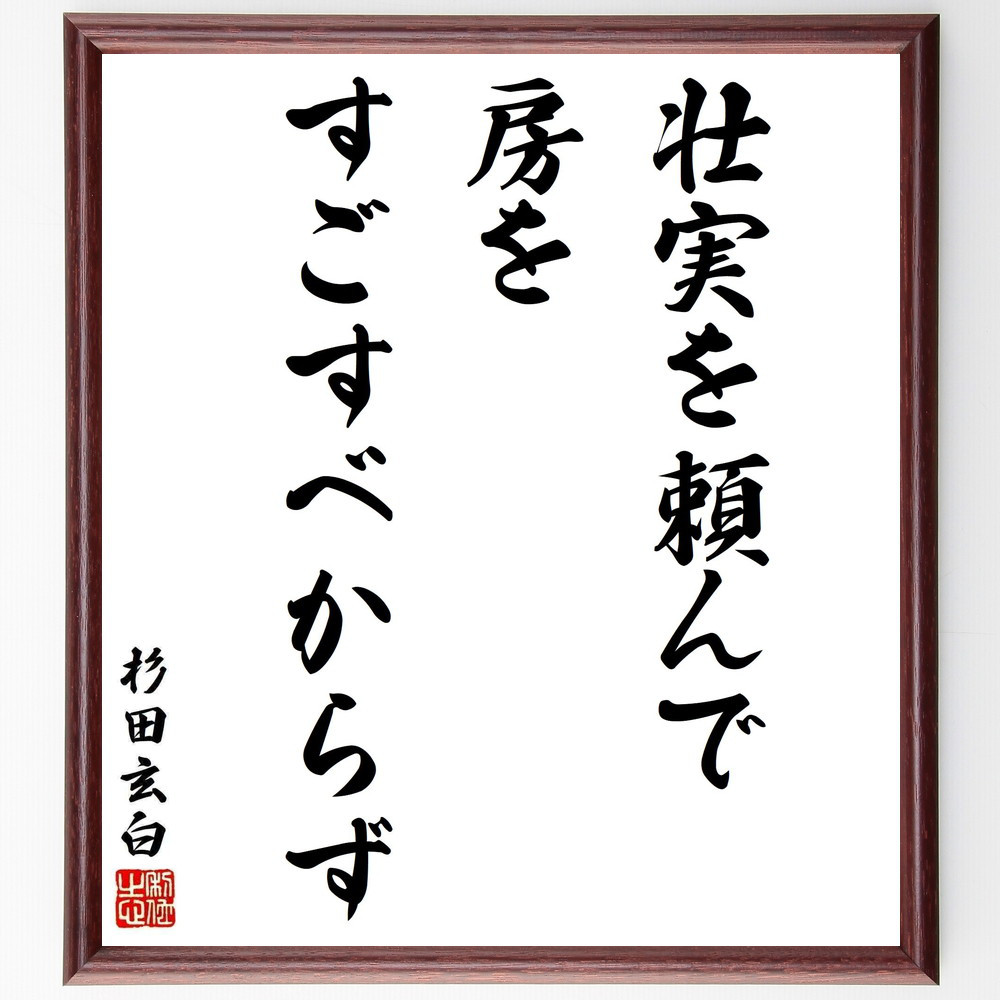 壮実を頼んで
房を
すごすべからず
杉田玄白